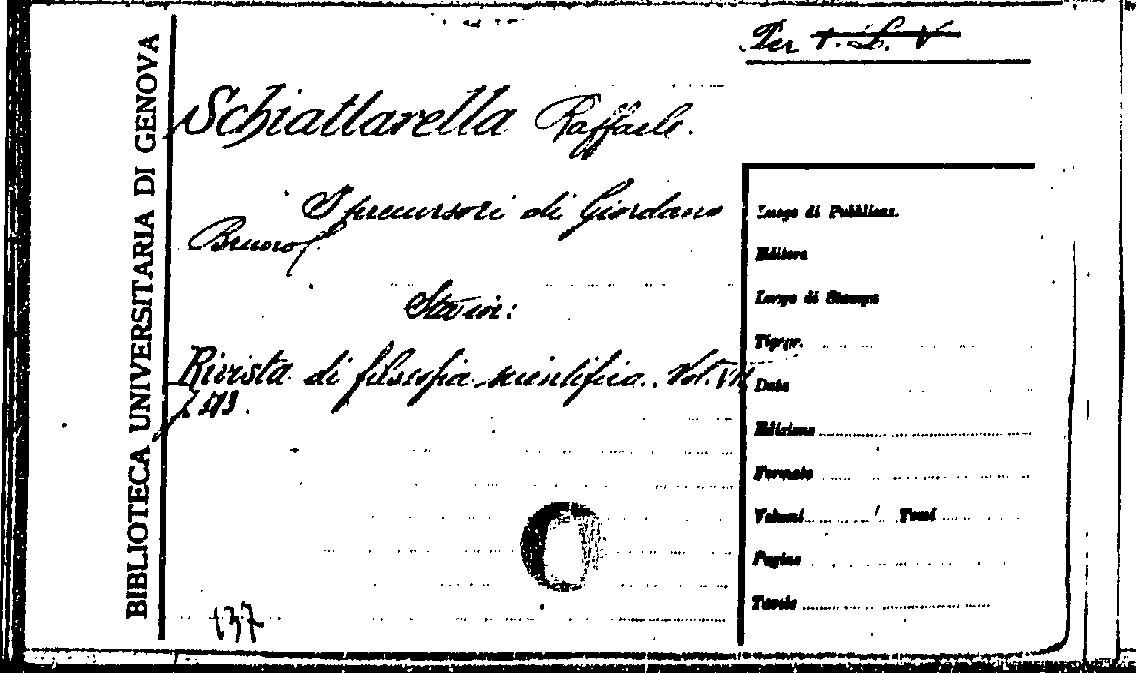 Per 1. L. V
BIBLIOTECA UNIVERSITARIA DI GENOVA
Schiattarella Raffaele.
I precursori di Giordano
Bruno.
Sta in:
Rivista di filosofia scientifica. Vol. VII
137
Luogo di Pubblicaz.
Editore
Luogo di Stampa
Tipogr.
Data
Edizione
Formato
Volumi Tomi
Pagine
Tavole